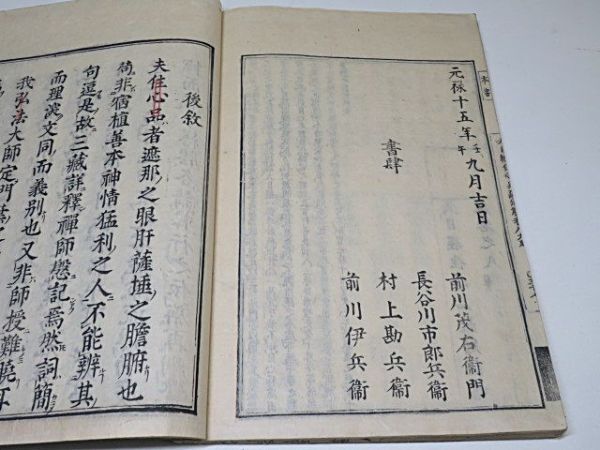 元祿十五年壬午九月吉日
書肆
前川茂右衞門
長谷川市郎兵衞
村上勘兵衞
前川伊兵衞
後敘
夫住心品者遮那之眼肝薩埵之膽腑也
苟非宿植善本神情猛利之人不能辨其
句逗是故三藏詳釋禪師慇記焉然詞簡
而理深文同而義別也又非師授難曉耳
我弘法大師定門